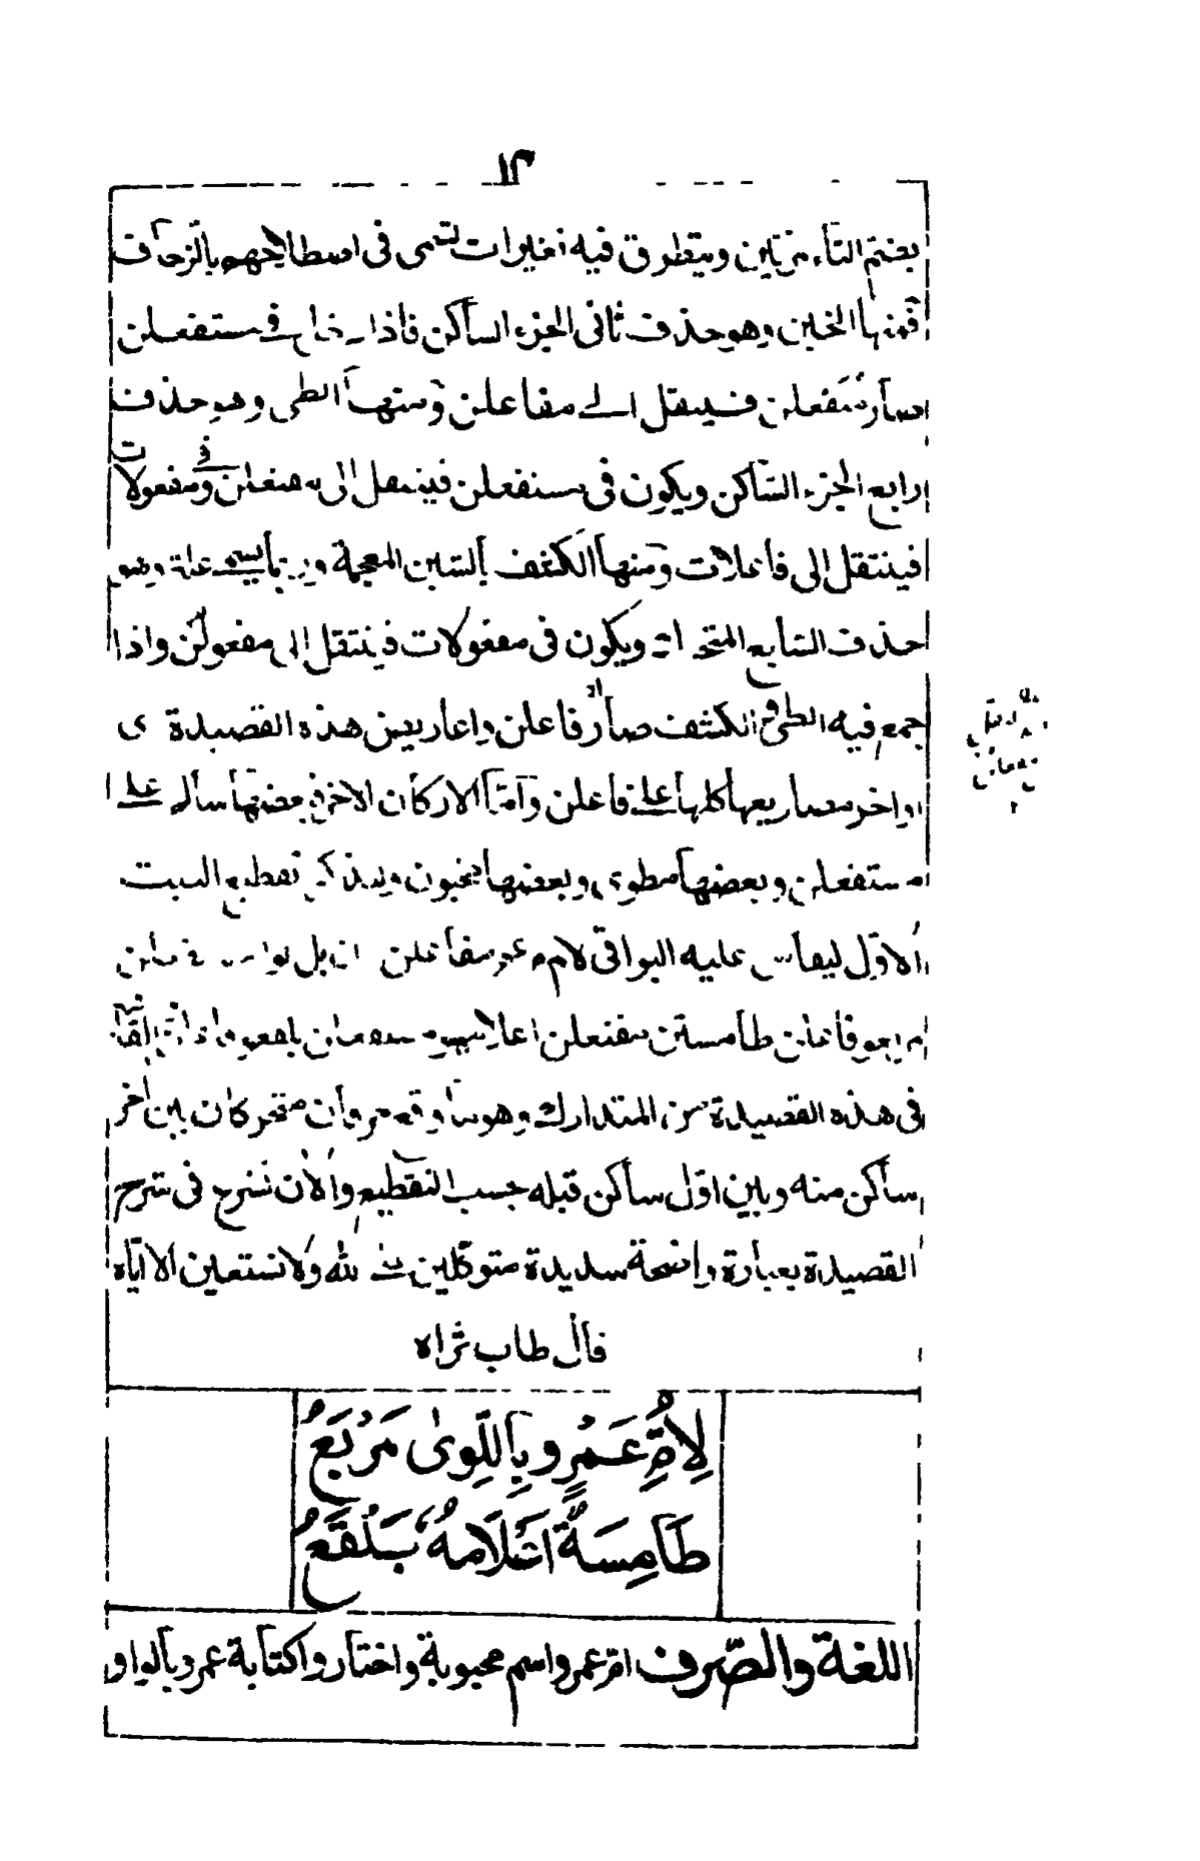 ١٣
بضم التاء مرتين ويتطرق فيه تغيرات تسمى فى اصطلاحهم بالزحاف
فمنها الخبن وهو حذف ثانى الجزء الساكن فاذا دخل فى مستفعلن
صار متفعلن فينقل الى مفاعلن ومنها الطى وهو حذف
رابع الجزء الساكن ويكون فى مستفعلن فينتقل الى مفتعلن وفى مفعولات
فينتقل الى فاعلات ومنها الكشف بالشين المعجمة وهو
حذف السابع المتحرك ويكون فى مفعولات فينتقل الى مفعولن واذا
جمع فيه الطى والكشف صار فاعلن واعاريض هذه القصيدة
اواخر مصاريعها كلها على فاعلن وآما الاركان الاخر فبعضها سالم على
مستفعلن وبعضها مطوى وبعضها مخبون ولنذكر تقطيع البيت
الاول ليقاس عليه البواقى لام عمر مفاعلن
مربعو فاعلن طامستن مفتعلن اعلامهو
فى هذه القصيدة من المتدارك وهو ما وقع حرفان متحركان بين آخر
ساكن منه وبين اول ساكن قبله حسب التقطيع والآن نشرع فى شرح
القصيدة بعبارة واضحة سديدة متوكلين على الله ولا نستعين الا اياه
قال طاب ثراه
لِاُمِّ عَمْرٍو بِاللِّوىٰ مَرْبَعُ
طَامِسَةٌ اَعْلَامُهُ بَلْقَعُ
اللغة والصرف ام عمرو اسم محبوبة واختار واكتابة عمرو بالواو